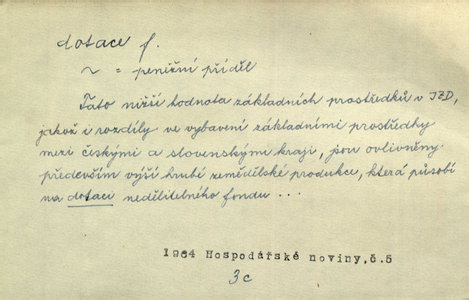 dotace f.
~ = peněžní příděl
Tato nižší hodnota základních prostředků v JZD,
jakož i rozdíly ve vybavení základními prostředky
mezi českými a slovenskými kraji, jsou ovlivněny
především výší hrubé zemědělské produkce, která působí
na dotaci nedělitelného fondu ...
1964 Hospodářské noviny,č.5
3c